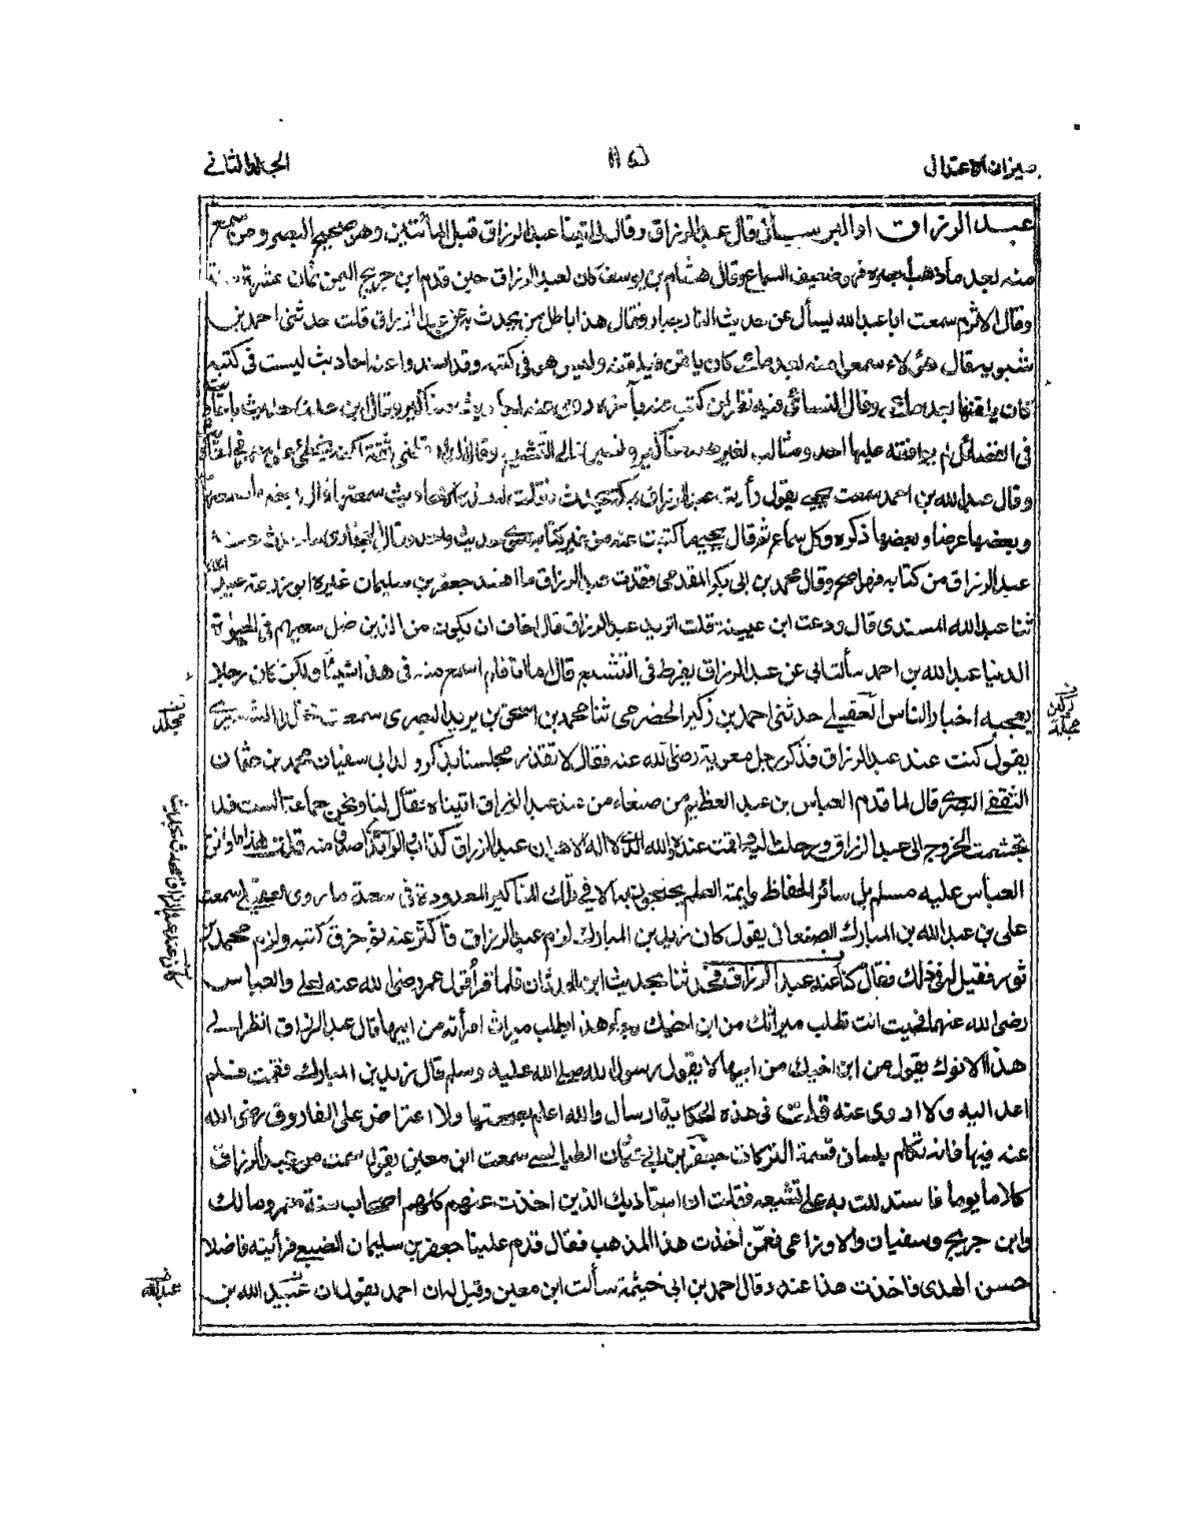 ميزان الاعتدال
الجلد الثاني
عبد الرزاق قال عبد الرزاق وقال لى اتينا عبد الرزاق قبل المائتين وهو صحيح البصر ومن سمع
منه بعد ما ذهب بصره فهو ضعيف السماع وقال هشام بن يوسف كان لعبد الرزاق حين قدم ابن جريج اليمن ثمان عشرة سنة
وقال الاثرم سمعت ابا عبد الله يسأل عن حديث النار جبار فقال هذا باطل من يحدث به عن عبد الرزاق قلت حدثنى احمد بن
شبويه قال هؤلاء سمعوا منه بعد ما كان يلقن فيلقنه وليس هو فى كتبه وقد اسندوا عنه احاديث ليست فى كتبه
كان يلقنها بعد ما وقال النسائى فيه نظر لمن كتب عنه بآخره روى عنه احاديث مناكير وقال ابن عدى حدث باحاديث
فى الفضائل لم يوافقه عليها احد ومثالب لغيرهم مناكير ونسبوه الى التشيع وقال الدارقطنى ثقة لكنه يخطئ على معمر فى احاديث
وقال عبد الله بن احمد سمعت يحيى يقول رأيت عبد الرزاق بمكة يحدث فقلت له
وبعضها عرضا وبعضها ذكره وكل سماع ثم قال يحيى ما كتبت عنه من غير كتابه سوى حديث واحد وقال البخارى ما حدث عنه
عبد الرزاق من كتابه فهو اصح وقال محمد بن ابى بكر المقدمى فقدت عبد الرزاق ما افسد جعفر بن سليمان غيره ابو زرعة عبيد الله
ثنا عبد الله المسندى قال ودعت ابن عيينة قلت اتريد عبد الرزاق قال اخاف ان يكون من الذين ضل سعيهم فى الحيوة
الدنيا عبد الله بن احمد سألت ابى عن عبد الرزاق يفرط فى التشيع قال اما انا فلم اسمع منه فى هذا شيئا ولكن كان رجلا
يعجبه اخبار الناس العقيلى حدثنى احمد بن زكير الحضرمى ثنا محمد بن اسحق بن يزيد البصرى سمعت مخلدا الشعيرى
يقول كنت عند عبد الرزاق فذكر رجل معوية رضى الله عنه فقال لا تقذر مجلسنا بذكر ولد ابى سفيان محمد بن عثمان
الثقفى البصرى قال لما قدم العباس بن عبد العظيم من صنعاء من عند عبد الرزاق اتيناه فقال لنا ونحن جماعة الست قد
تجشمت الخروج الى عبد الرزاق ورحلت اليه واقمت عنده والله الذى لا اله الا هو ان عبد الرزاق كذاب والواقدى اصدق منه قلت هذا ما وافق
العباس عليه مسلم بل سائر الحفاظ وايمة العلم يحتجون به الا فى تلك المناكير المعدودة فى سعة ما روى العقيلى سمعت
على بن عبد الله بن المبارك الصنعانى يقول كان زيد بن المبارك لزم عبد الرزاق فاكثر عنه ثم حرق كتبه ولزم محمد بن
ثور فقيل له فى ذلك فقال كنا عند عبد الرزاق فحدثنا بحديث ابن الحدثان فلما قرأ قول عمر رضى الله عنه لعلى والعباس
رضى الله عنهما فجئت انت تطلب ميراثك من ابن اخيك وجاء هذا يطلب ميراث امرأته من ابيها قال عبد الرزاق انظر الى
هذا الانوك يقول من ابن اخيك من ابيها لا يقول رسول الله صلى الله عليه وسلم قال زيد بن المبارك فقمت فلم
اعد اليه ولا اروى عنه قلت فى هذه الحكاية ارسال والله اعلم بصحتها ولا اعتراض على الفاروق رضى الله
عنه فيها فانه تكلم بلسان قسمة التركات جعفر بن ابى عثمان الطيالسى سمعت ابن معين يقول سمعت من عبد الرزاق
كلاما يوما فاستدللت به على تشيعه فقلت ان استاذيك الذين اخذت عنهم كلهم اصحاب سنة معمر ومالك
وابن جريج وسفيان والاوزاعى فعمن اخذت هذا المذهب فقال قدم علينا جعفر بن سليمان الضبعى فرأيته فاضلا
حسن الهدى فاخذت هذا عنه وقال احمد بن ابى خيثمة سألت ابن معين وقيل له ان احمد يقول ان عبيد الله بن